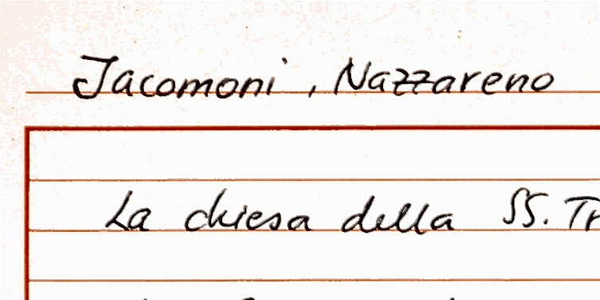 Jacomoni, Nazzareno
La chiesa della SS. Tr